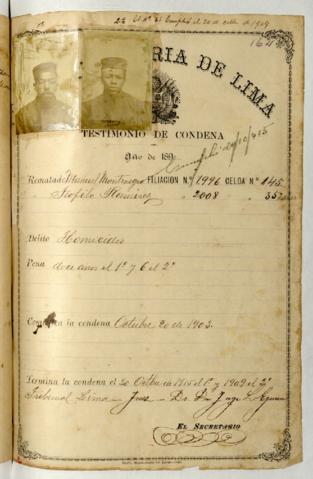 El nº 2º Cumplió el 20 de oct. de 1909
164
RIA DE LIMA
TESTIMONIO DE CONDENA
Año de 189
Cumplió 20/10/915
Rematado Manuel Montenegro FILIACION N.º 1996 CELDA Nº 145
Teófilo Ramirez 2008
Delito Homicidio
Pena doce años el 1º y 6 el 2º
la condena Octubre 20 de 1903.
Termina la condena el 20 Octbre de 1915 el 1º y 1909 el 2º
Tribunal Lima Juez Dr. Dn
EL SECRETARIO